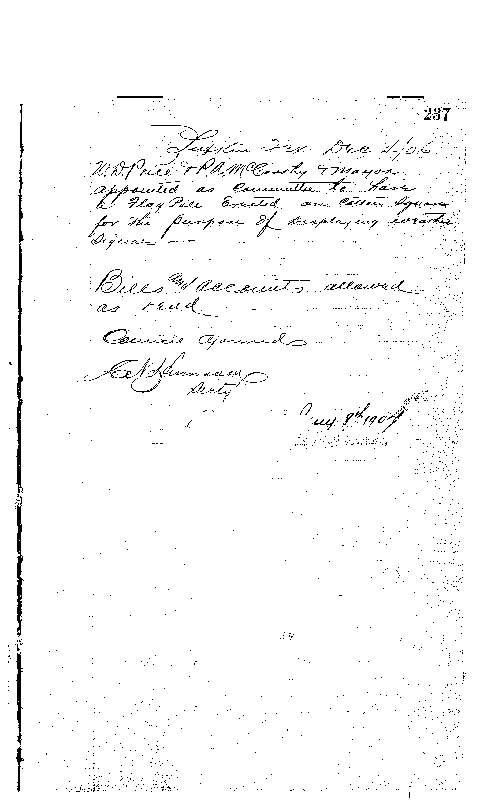 237
Lufkin Tex Dec 4/06
W.D. Price & P.A. McCarthy & Mayor
appointed as Committee to have
a Flag Pole Erected on Cotton Square
for the purpose of displaying weather
Signal
Bills and Accounts allowed
as read
Council ajourned
Secty
8th 1907